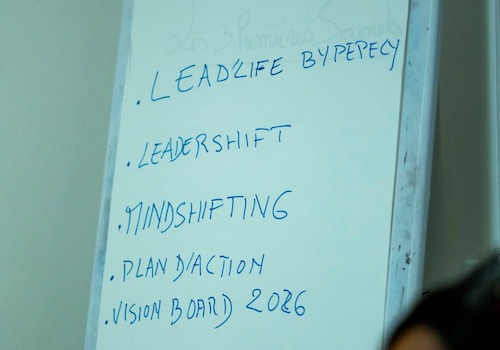 Les 3 lumières
. LEAD'LIFE BYPEPECY
. LEADERSHIFT
. MINDSHIFTING
. PLAN D'ACTION
. VISION BOARD 2026